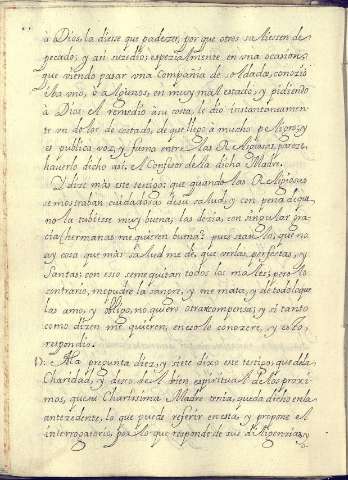 à Dios, la diesse que padezer, porque otros saliesen de
pecado, y asi suzedio; espezialmente en una ocasion,
que viendo pasar una Compañia de soldados, conozió
iba uno, ò algunos, en muy mal estado, y pidiendo
à Dios el remedio à su costa, le dió instantaneamen
te un dolor de costado, de que llegó à mucho peligro, y
es publica voz, y fama entre las Religiosas, parece
haverlo dicho asi, el Confesor de la dicha Madre.
Y dize mas este testigo: que quando las Religiosas
se mostraban cuidadosas de su salud, y con pena de que
no la tubiesse muy buena; las dezia con singular gra
cia (hermanas me quieren buena? pues sean lo, que no
ay cosa que mas salud me dè, que verlas perfectas, y
Santas; con esso se me quitan todos los males; pero lo
contrario, me pudre la sangre, y me mata, y de todo lo que
las amo, y no quiero otra recompensa; y si tanto
como dizen me quieren, en esto lo conozere, y esto,
respondio.
17. A la pregunta diez, y siete dixo este testigo, que de la
Charidad, y deseo del bien espiritual de los proxi
mos, que su Charissima Madre tenia, queda dicho en la
antezedente, lo que puede referir en esta, y propone el
interrogatorio, por lo que responde de sus diligencias, y